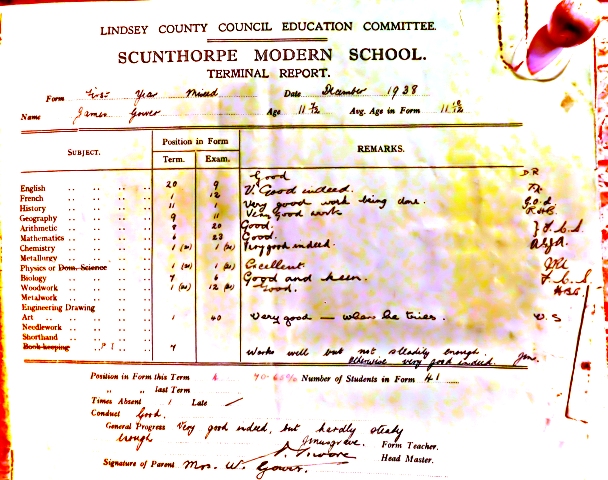 LINDSEY COUNTY COUNCIL EDUCATION COMMITTEE.
SCUNTHORPE MODERN SCHOOL.
TERMINAL REPORT.
Form First Year Mixed Date December 1938
Name James Gower Age 11 7/12 Avg. Age in Form 11
SUBJECT. Position in Form REMARKS.
Term. Exam.
English 20 9 Good D.R
French 1 12 V. Good indeed.
History 11 1 Very good work being done. G.O.d
Geography 9 11 Very Good work
Arithmetic 8 20 Good.
Mathematics 23 Good.
Chemistry 1 1 Very good indeed.
Metallurgy
Physics or Dom. Science 1 1 Excellent.
Biology 7 6 Good and keen.
Woodwork 1 12 Good.
Metalwork
Engineering Drawing
Art 1 40 Very good — when he tries. W. S
Needlework
Shorthand
Book-keeping P T. 7 Works well but not steadily enough.
otherwise very good indeed.
Position in Form this Term Number of Students in Form 41
" " last Term
Times Absent 1 Late /
Conduct Good.
General Progress Very good indeed, but hardly steady
enough
J Musgrave. Form Teacher.
Head Master.
Signature of Parent Mrs. W. Gower.